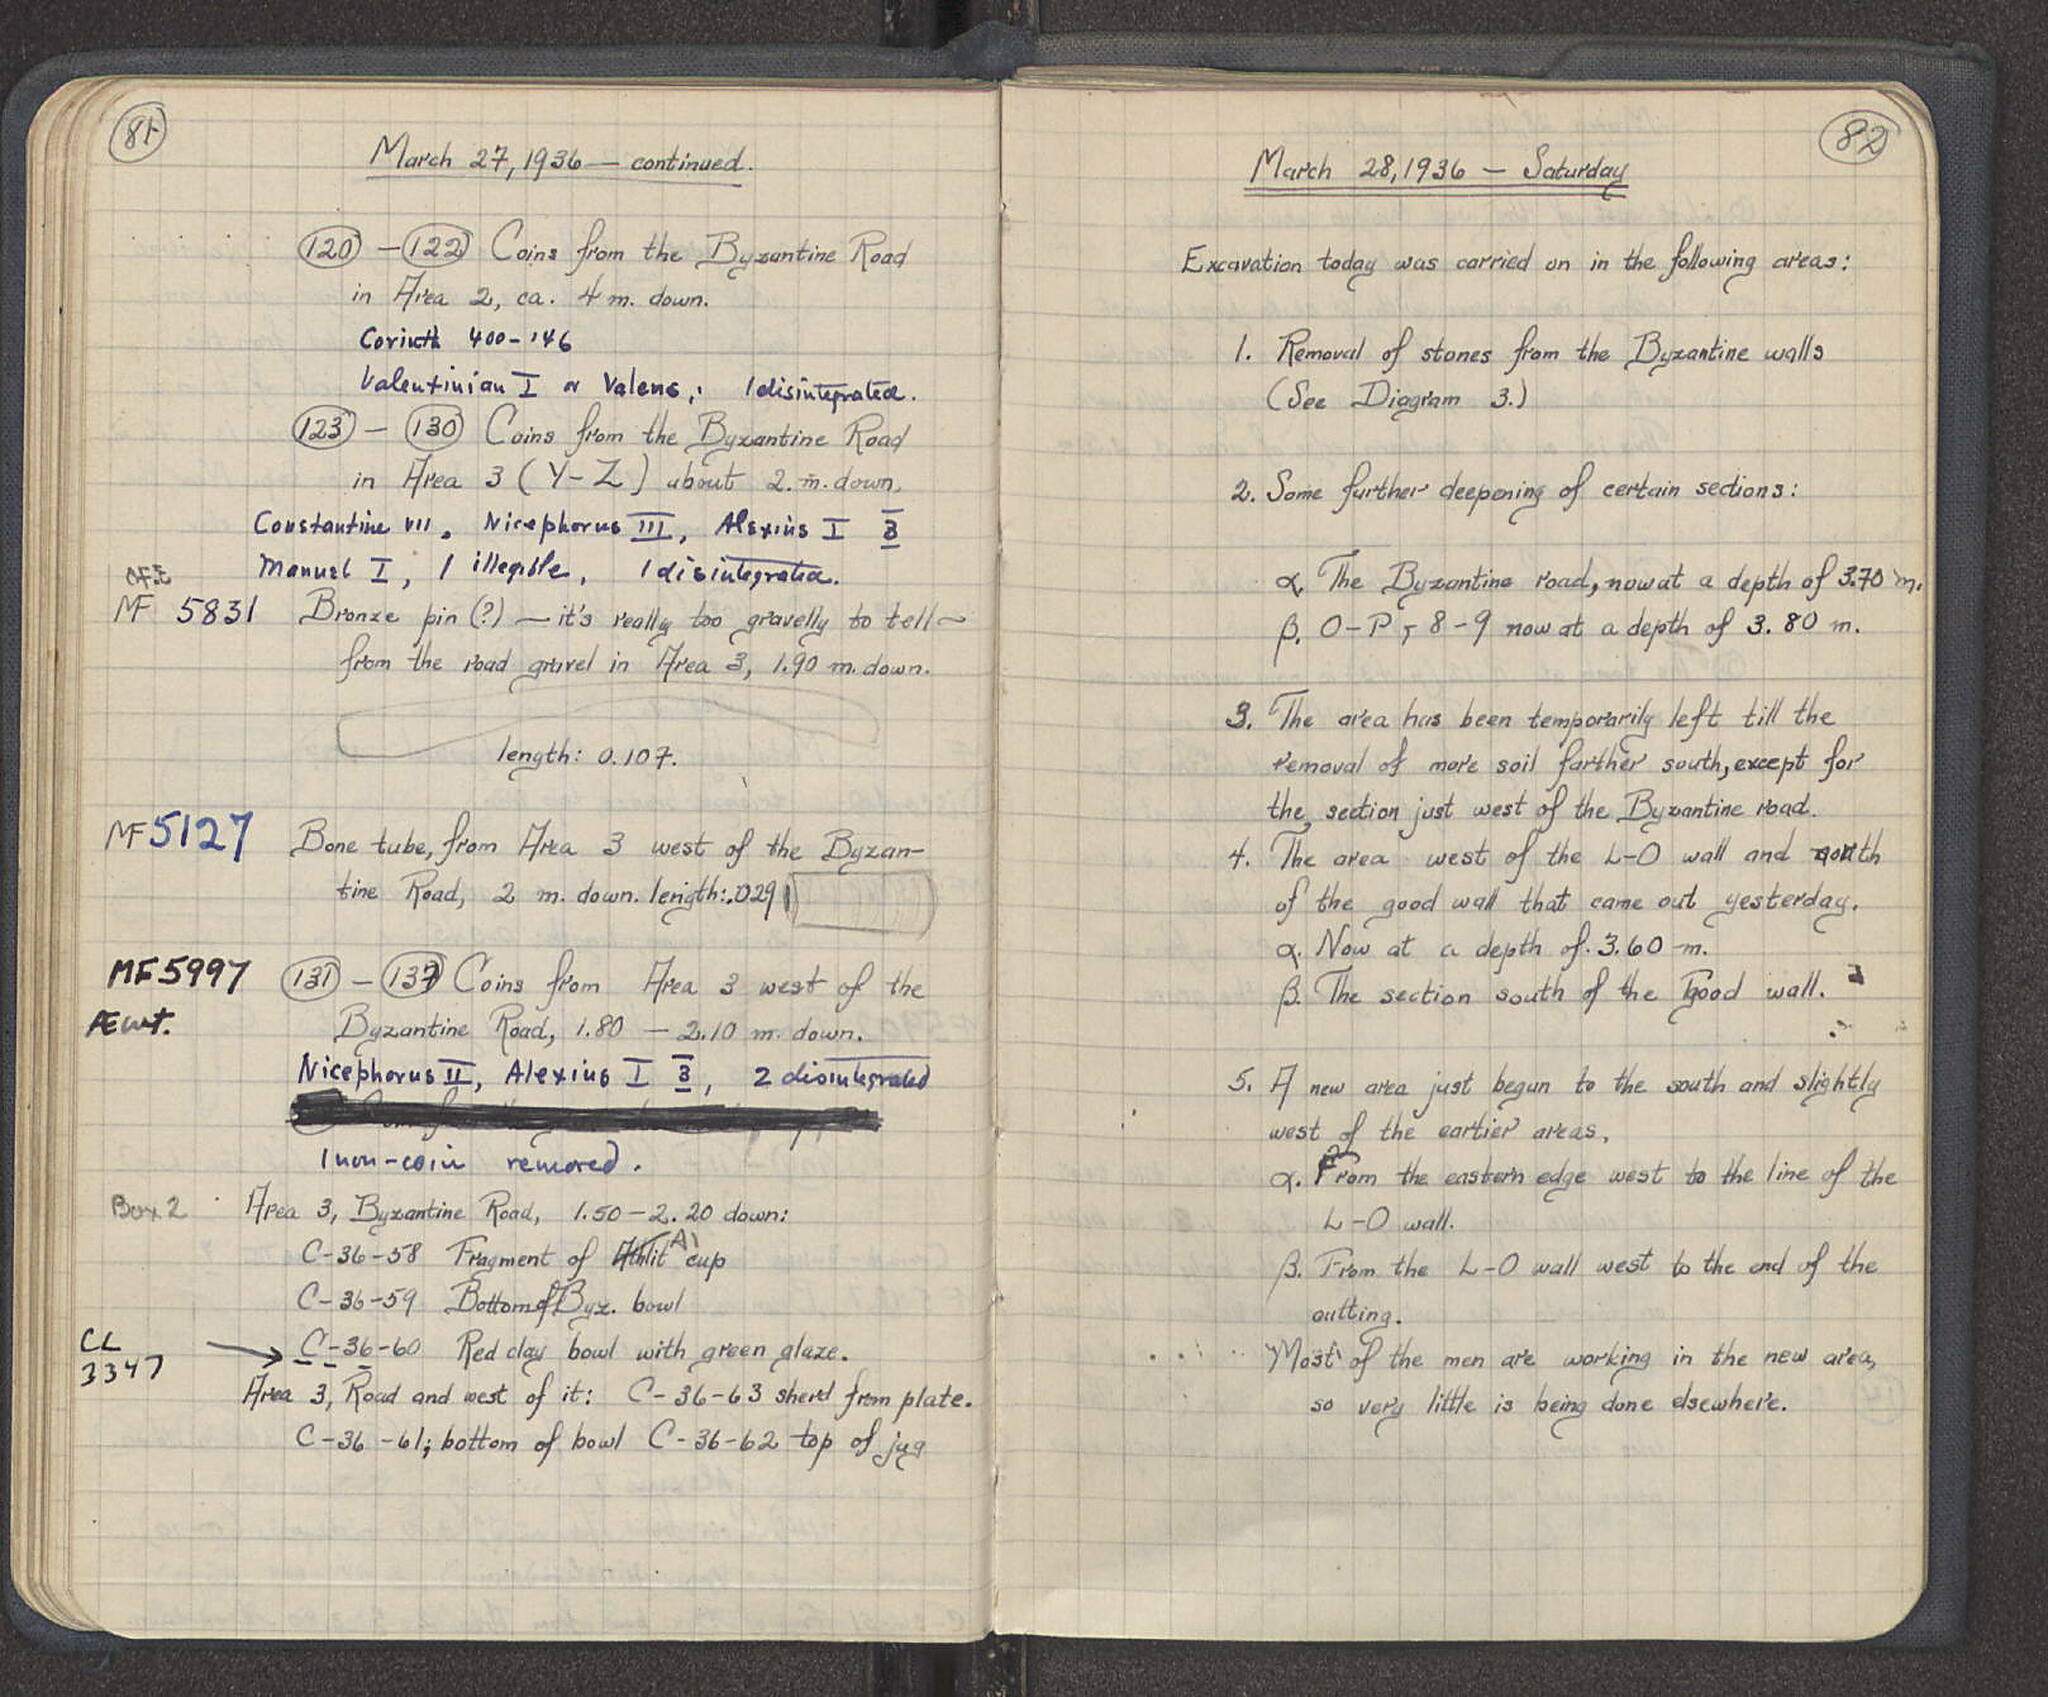 81
March 27, 1936 — continued.
120 — 122 Coins from the Byzantine Road
in Area 2, ca. 4 m. down.
Corinth 400-146
Valentinian I or Valens; 1 disintegrated.
123 — 130 Coins from the Byzantine Road
in Area 3 (Y-Z) about 2. m. down.
Constantine VII, Nicephorus III, Alexius I 3
Manuel I, 1 illegible, 1 disintegrated.
MF 5831 Bronze pin (?) — it's really too gravelly to tell ~
from the road gravel in Area 3, 1.90 m. down.
length: 0.107.
MF 5127 Bone tube, from Area 3 west of the Byzan-
tine Road, 2 m. down. length: .029
MF 5997 131 — 137 Coins from Area 3 west of the
Æ wt. Byzantine Road, 1.80 — 2.10 m. down.
Nicephorus II, Alexius I 3, 2 disintegrated
1 non-coin removed.
Box 2 Area 3, Byzantine Road, 1.50 — 2.20 down:
C-36-58 Fragment of cup
C-36-59 Bottom of Byz. bowl
CL 3347 → C-36-60 Red clay bowl with green glaze.
Area 3, Road and west of it: C-36-63 sherd from plate.
C-36-61; bottom of bowl C-36-62 top of jug
82
March 28, 1936 — Saturday
Excavation today was carried on in the following areas:
1. Removal of stones from the Byzantine walls
(See Diagram 3.)
2. Some further deepening of certain sections:
α. The Byzantine road, now at a depth of 3.70 m.
β. O-P, 8-9 now at a depth of 3.80 m.
3. The area has been temporarily left till the
removal of more soil farther south, except for
the section just west of the Byzantine road.
4. The area west of the L-O wall and north
of the good wall that came out yesterday.
α. Now at a depth of 3.60 m.
β. The section south of the Good wall.
5. A new area just begun to the south and slightly
west of the earlier areas.
α. From the eastern edge west to the line of the
L-O wall.
β. From the L-O wall west to the end of the
cutting.
Most of the men are working in the new area,
so very little is being done elsewhere.